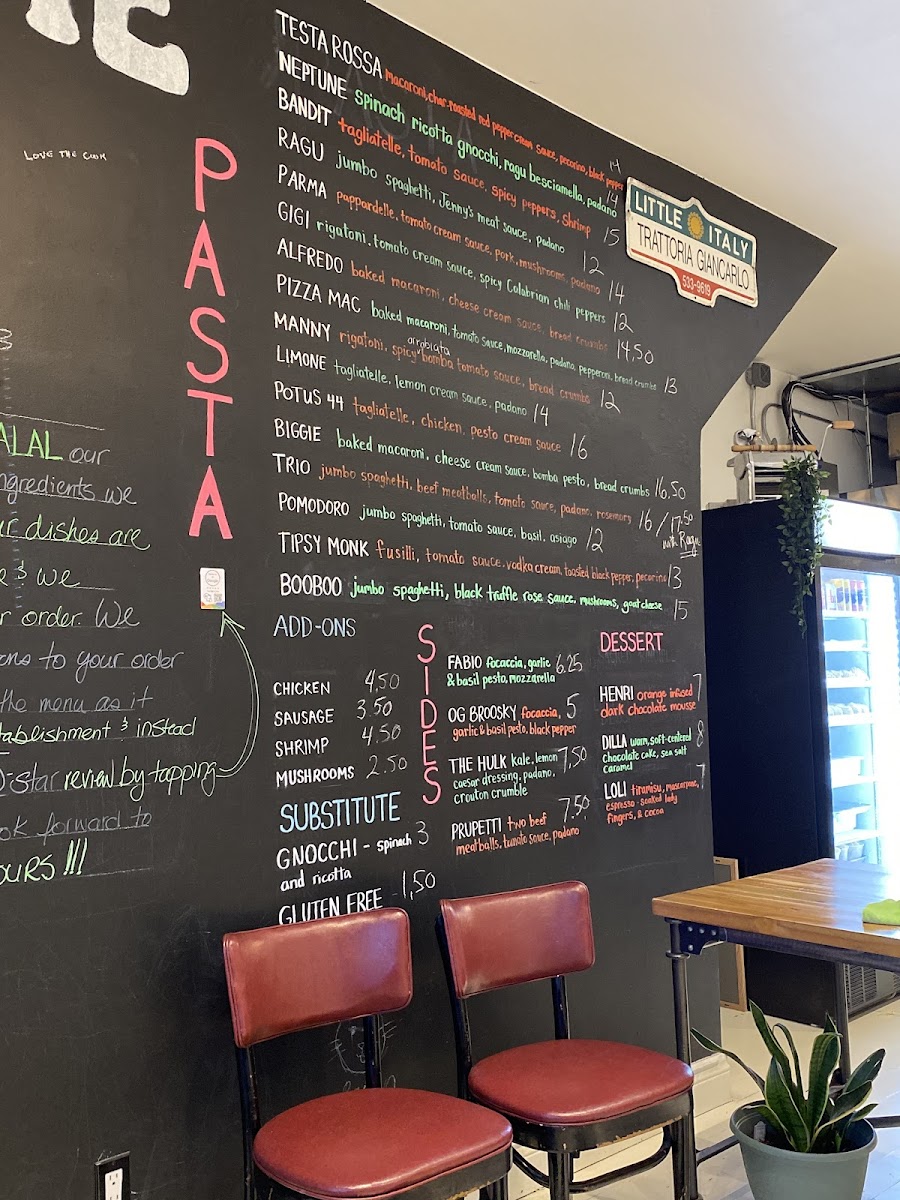 LOVE THE COOK
3
ALAL our
ngredients we
ur dishes are
e & we
r order. We
ons to your order
the menu as it
tablishment & instead
-star review by tapping
ok forward to
OURS !!!
PASTA
TESTA ROSSA macaroni, char-roasted red pepper cream sauce, pecorino, black pepper 14
NEPTUNE spinach ricotta gnocchi, ragu besciamella, padano 14
BANDIT tagliatelle, tomato sauce, spicy peppers, shrimp 15
RAGU jumbo spaghetti, Jenny's meat sauce, padano 12
PARMA pappardelle, tomato cream sauce, pork, mushrooms, padano 14
GIGI rigatoni, tomato cream sauce, spicy Calabrian chili peppers 12
ALFREDO baked macaroni, cheese cream sauce, bread crumbs 14,50
PIZZA MAC baked macaroni, tomato sauce, mozzarella, padano, pepperoni, bread crumbs 13
arrabiata
MANNY rigatoni, spicy bomba tomato sauce, bread crumbs 12
LIMONE tagliatelle, lemon cream sauce, padano 14
POTUS 44 tagliatelle, chicken, pesto cream sauce 16
BIGGIE baked macaroni, cheese cream sauce, bomba pesto, bread crumbs 16,50
TRIO jumbo spaghetti, beef meatballs, tomato sauce, padano, rosemary 16 / 17.50
with Ragu
POMODORO jumbo spaghetti, tomato sauce, basil, asiago 12
TIPSY MONK fusilli, tomato sauce, vodka cream, toasted black pepper, pecorino 13
BOOBOO jumbo spaghetti, black truffle rose sauce, mushrooms, goat cheese 15
LITTLE ITALY
TRATTORIA GIANCARLO
533-9619
ADD-ONS
CHICKEN 4,50
SAUSAGE 3.50
SHRIMP 4.50
MUSHROOMS 2.50
SUBSTITUTE
GNOCCHI - spinach 3
and ricotta
GLUTEN FREE - 1,50
SIDES
FABIO focaccia, garlic 6.25
& basil pesto, mozzarella
OG BROOSKY focaccia, 5
garlic & basil pesto, black pepper
THE HULK kale, lemon 7,50
caesar dressing, padano,
crouton crumble
PRUPETTI two beef 7.50
meatballs, tomato sauce, padano
DESSERT
HENRI orange infused 7
dark chocolate mousse
DILLA warm, soft-centered 8
chocolate cake, sea salt
caramel
LOLI tiramisu, mascarpone, 7
espresso-soaked lady
fingers, & cocoa